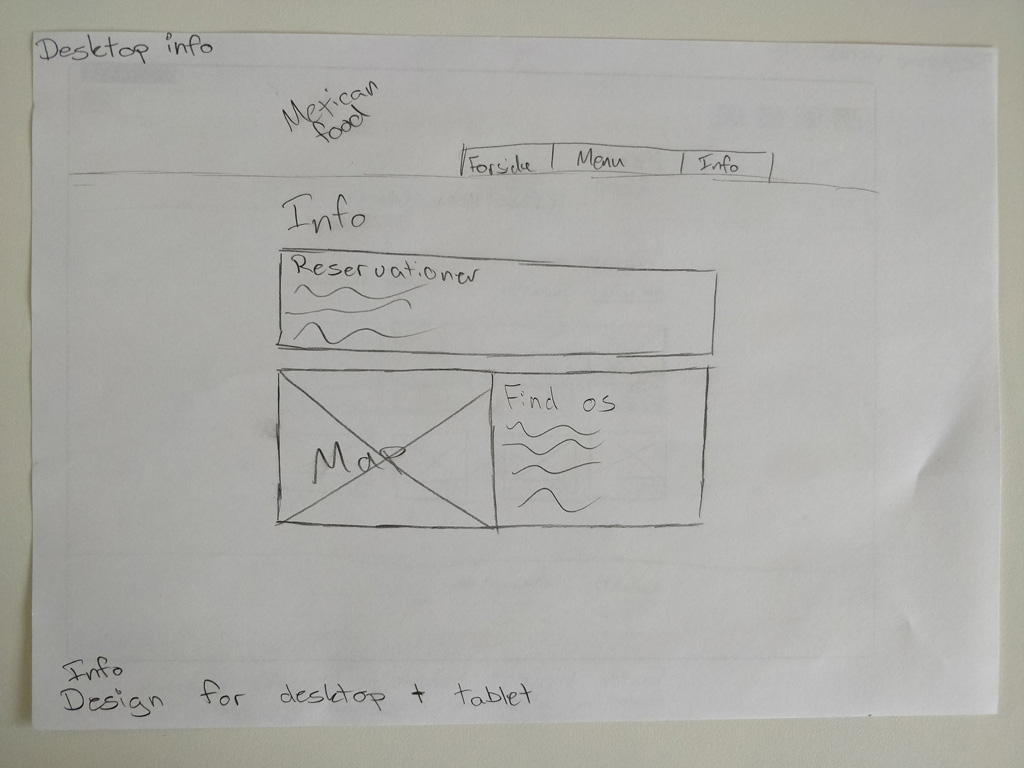 Desktop info
Mexican
food
Forside Menu Info
Info
Reservationer
Map
Find os
Info
Design for desktop + tablet